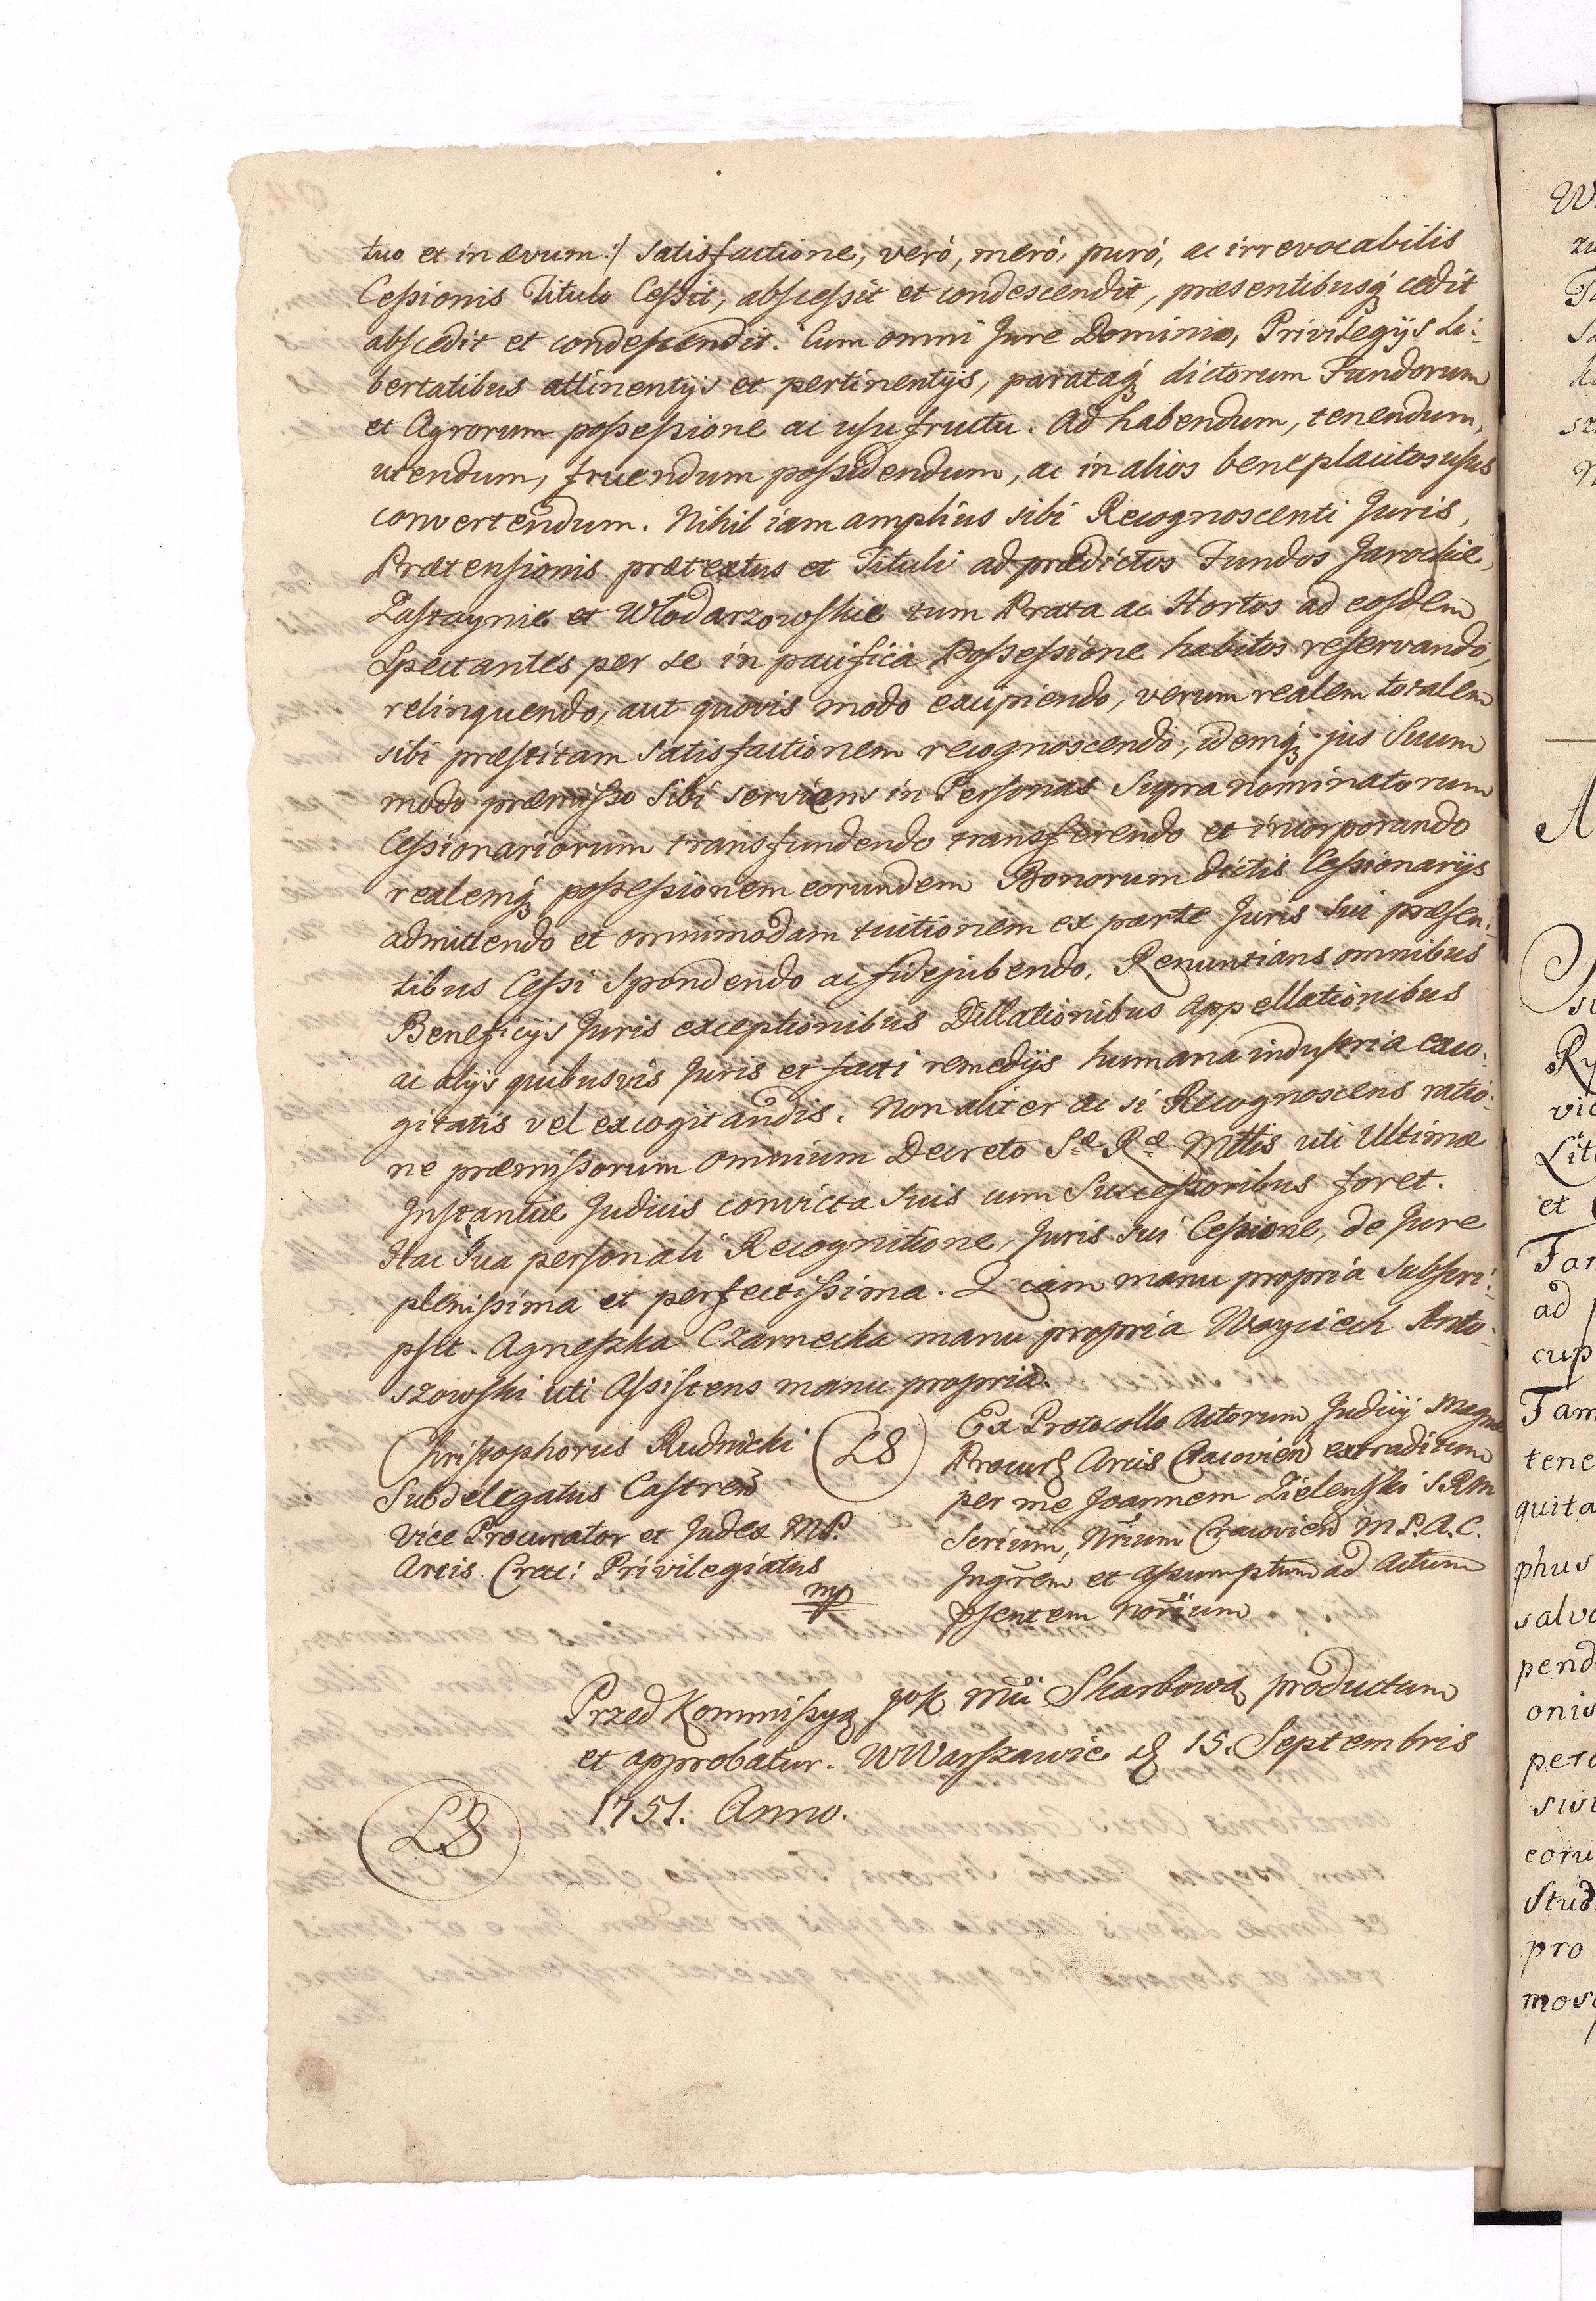 tuo et in ævum:/ satisfactione, verò, merò, purò, ac irrevocabilis
Ceſsionis Titulo Ceſsit, abſceſsit et condescendit, præsentibusq́ cedit
abſcedit et condeſcendit. Cum omni Jure Dominio, Privilegijs Li-
bertatibus attinentijs et pertinentijs, parataq́ dictorum Fundorum
et Agrorum poſseſsione ac uſufructu. Ad habendum, tenendum,
utendum, fruendum poſsidendum, ac in alios beneplacitos uſus
convertendum. Nihil iam amplius sibi Recognoscenti Juris,
Prætenſionis prætextus et Tituli ad prædictos Fundos Jarockie,
Zaſtaynie et Włodarzowſkie tum Prata ac Hortos ad eosdem
Spectantes per se in pacifica Poſseſsione habitos reſervando,
relinquendo, aut quovis modo excipiendo, verum realem totalem
sibi præſtitam satisfactionem recognoscendo, idemq́ jus Suum
modo præmiſso Sibi serviens in Perſonas Supra nominatorum
Ceſsionariorum transfundendo transferendo et incorporando
realemq́ poſseſsionem eorundem Bonorum dictis Ceſsionarijs
admittendo et omnimodam tuitionem ex parte Juris Sui præsen-
tibus Ceſsi Spondendo ac fidejubendo. Renuntians omnibus
Beneficijs Juris exceptionibus Dillationibus Appellationibus
ac alijs quibusvis Juris et facti remedijs humana induſtria exco-
gitatis vel excogitandis. Non aliter ac si Recognoscens ratio-
ne præmiſsorum omnium Decreto Sæ Ræ Mttis uti Ultimæ
Inſtantiæ Judicis convicta suis cum Succeſsoribus foret.
Hac Sua perſonali Recognitione, Juris Sui Ceſsione, de Jure
pleniſsima et perfectiſsima. Quam manu propria Subſcri-
pſit. Agneſzka Czarnecka manu propria Woyciech Anto-
szowſki uti Aſsiſtens manu propria.
Chriſtophorus Rudnicki
Subdelegatus Caſtren̄
Vice Procurator et Judex M P.
Arcis Crac: Privilegiatus
mp
LS
Ex Protocollo Actorum Judicij Magn
Procur Arcis Cracovien̄ extraditum
per me Joannem Zielenſki SRM
Serium̄, Nrium Cracovien̄ M P. A. C.
Jngrem et aſsumptum ad Actum
pſentem Norium
Przed Kommiſsyą Skarbową productum
et approbatur. W Warſzawie d 15. Septembris
1751. Anno.
LS